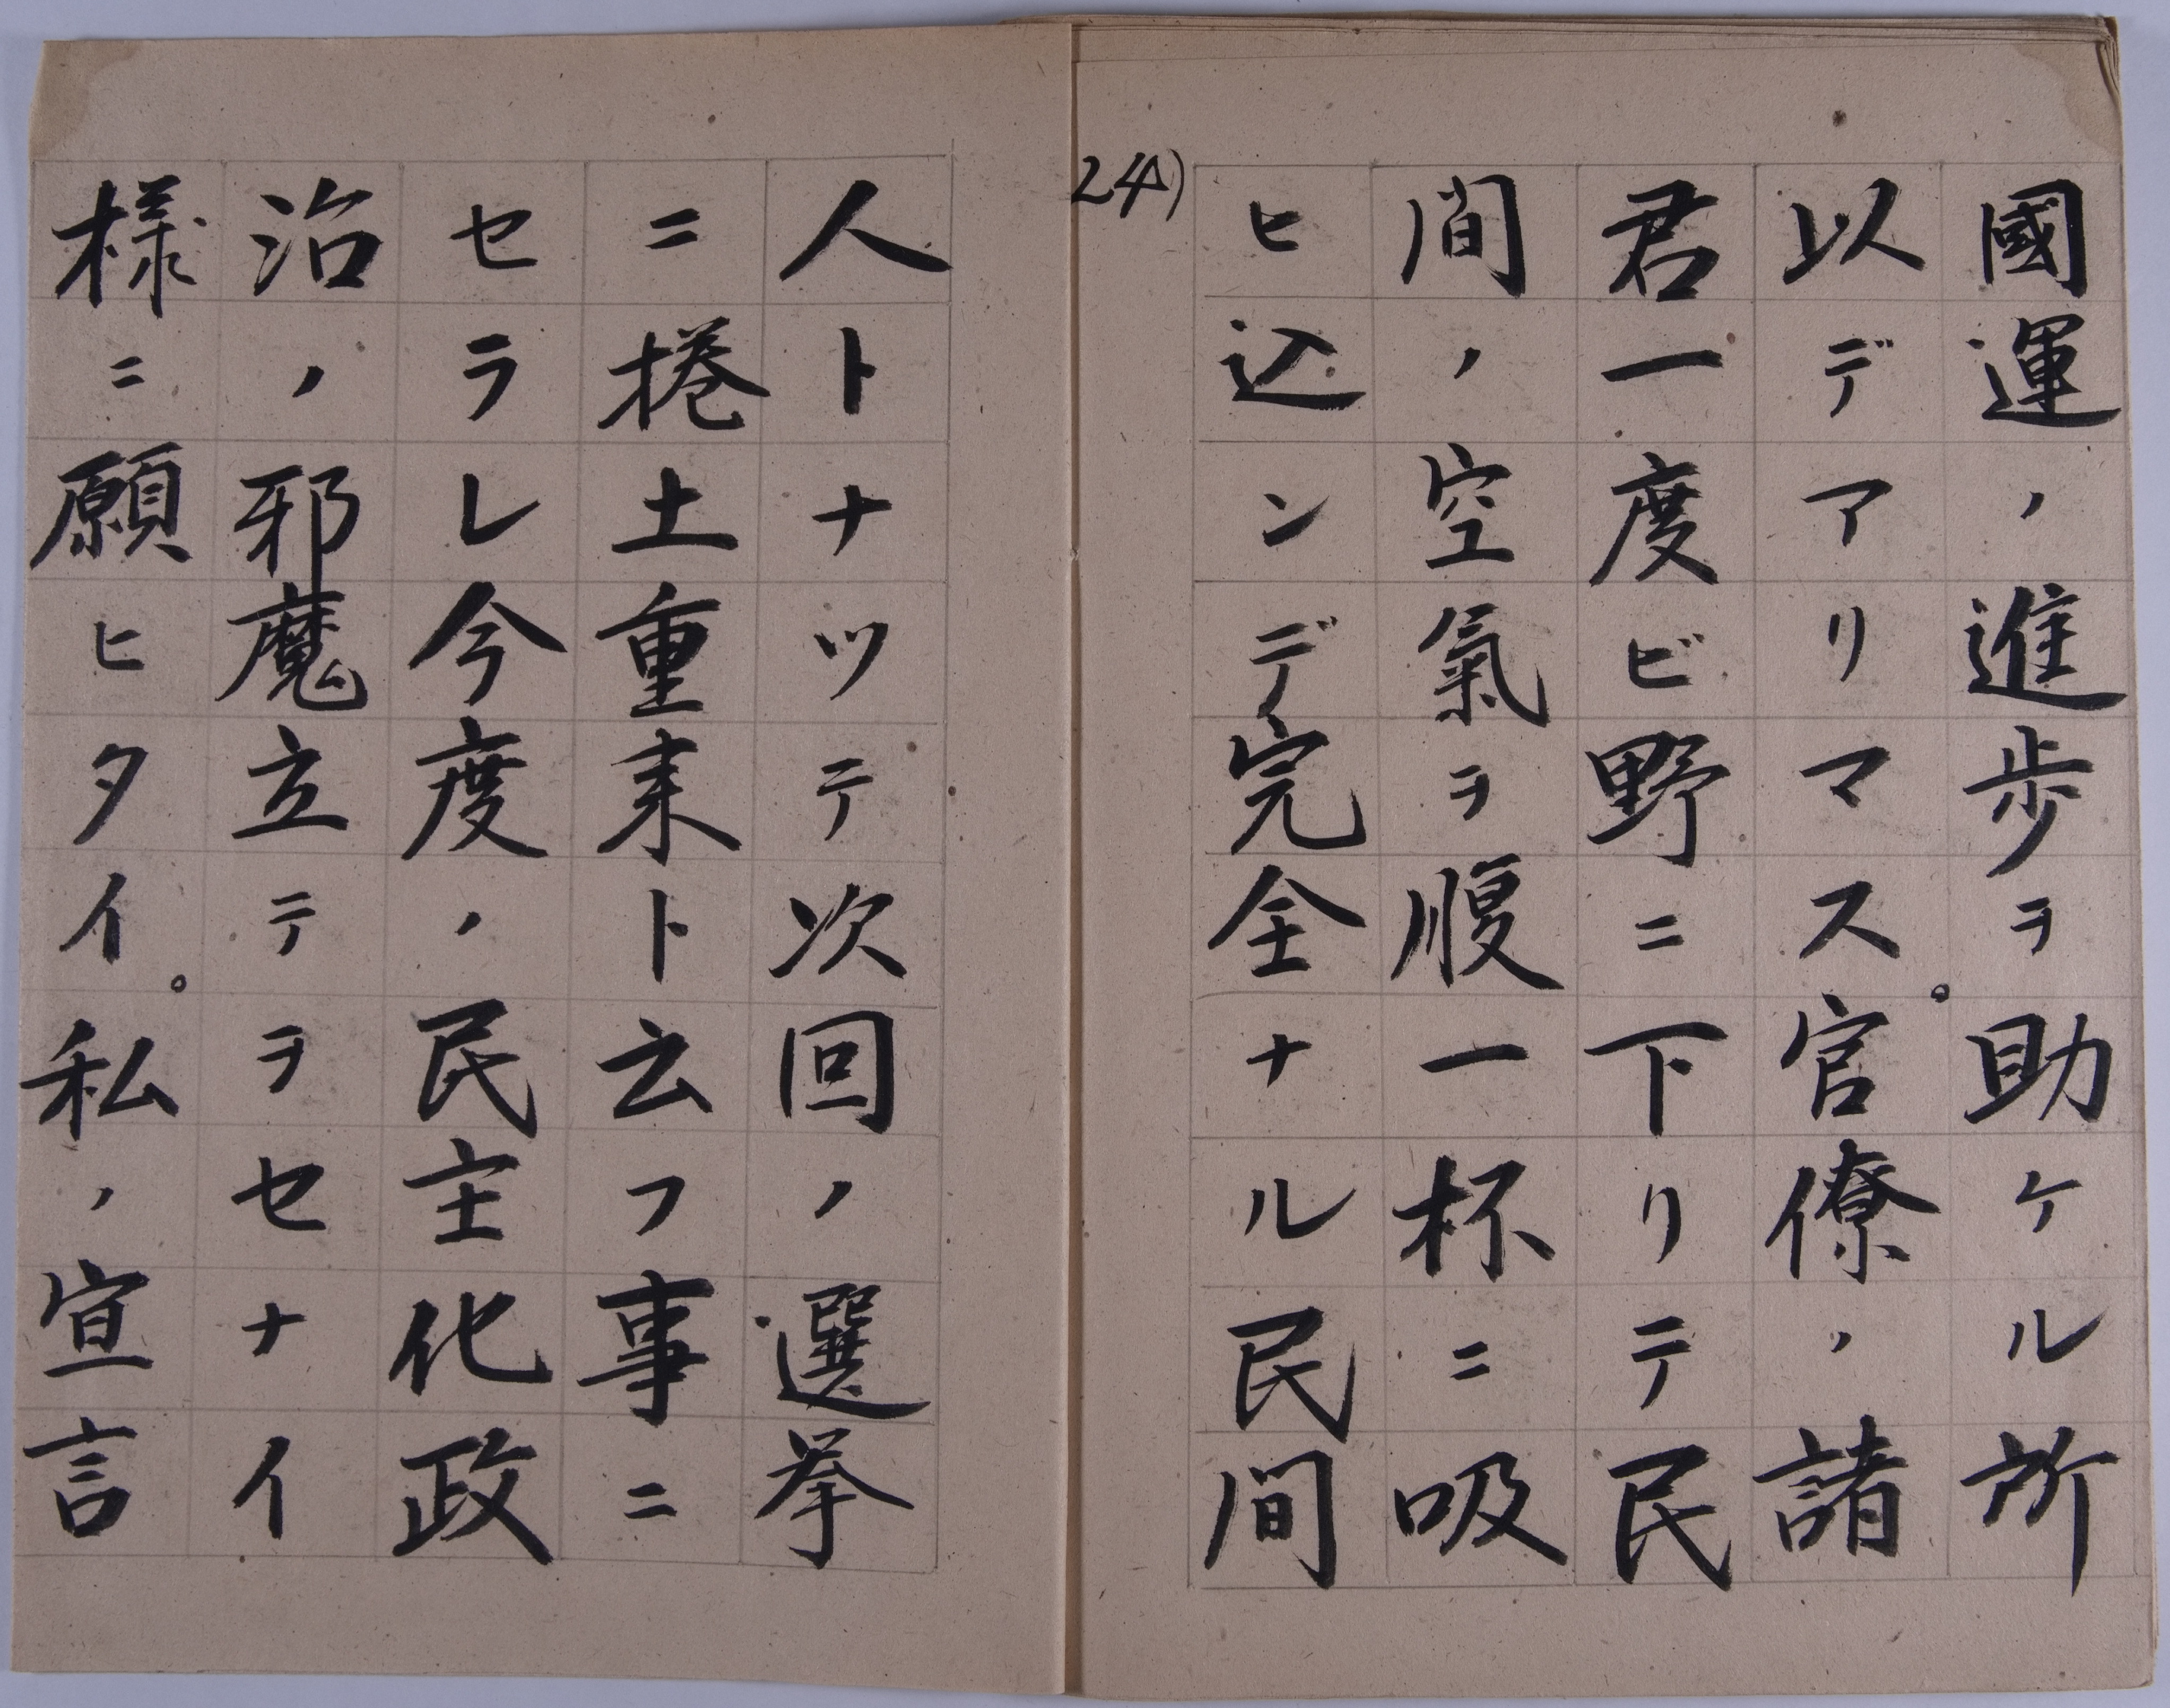 國運ノ進歩ヲ助ケル所
以デアリマス。官僚ノ諸
君一度ビ野ニ下リテ民
間ノ空氣ヲ腹一杯ニ吸
ヒ込ンデ完全ナル民間
24)
人トナツテ次回ノ選挙
ニ捲土重来ト云フ事ニ
セラレ今度ノ民主化政
治ノ邪魔立テヲセナイ
様ニ願ヒタイ。私ノ宣言